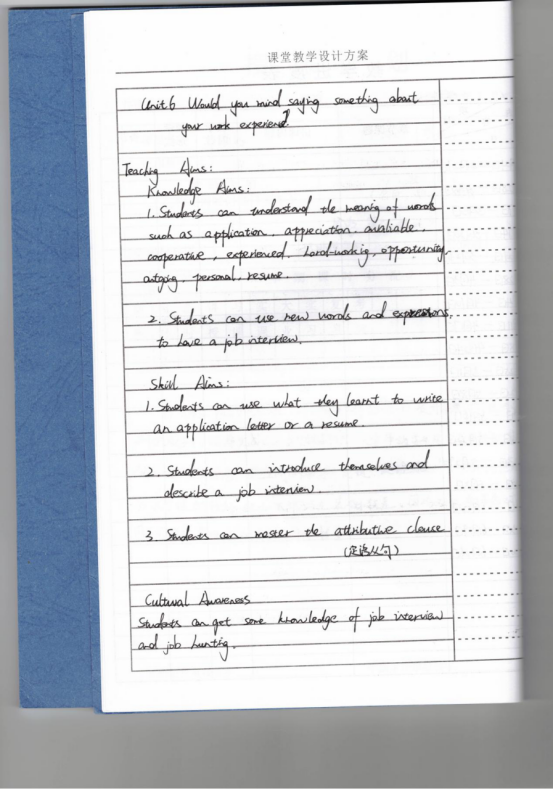 课堂教学设计方案
Unit 6 Would you mind saying something about
your work experience?
Teaching Aims:
Knowledge Aims:
1. Students can understand the meaning of words
such as application, appreciation, avaliable,
cooperative, experienced, hard-working, opportunity,
outgoing, personal, resume.
2. Students can use new words and expressions,
to have a job interview.
Skill Aims:
1. Students can use what they learnt to write
an application letter or a resume.
2. Students can introduce themselves and
describe a job interview.
3. Students can master the attributive clause
(定语从句)
Cultural Awareness
Students can get some knowledge of job interview
and job hunting.